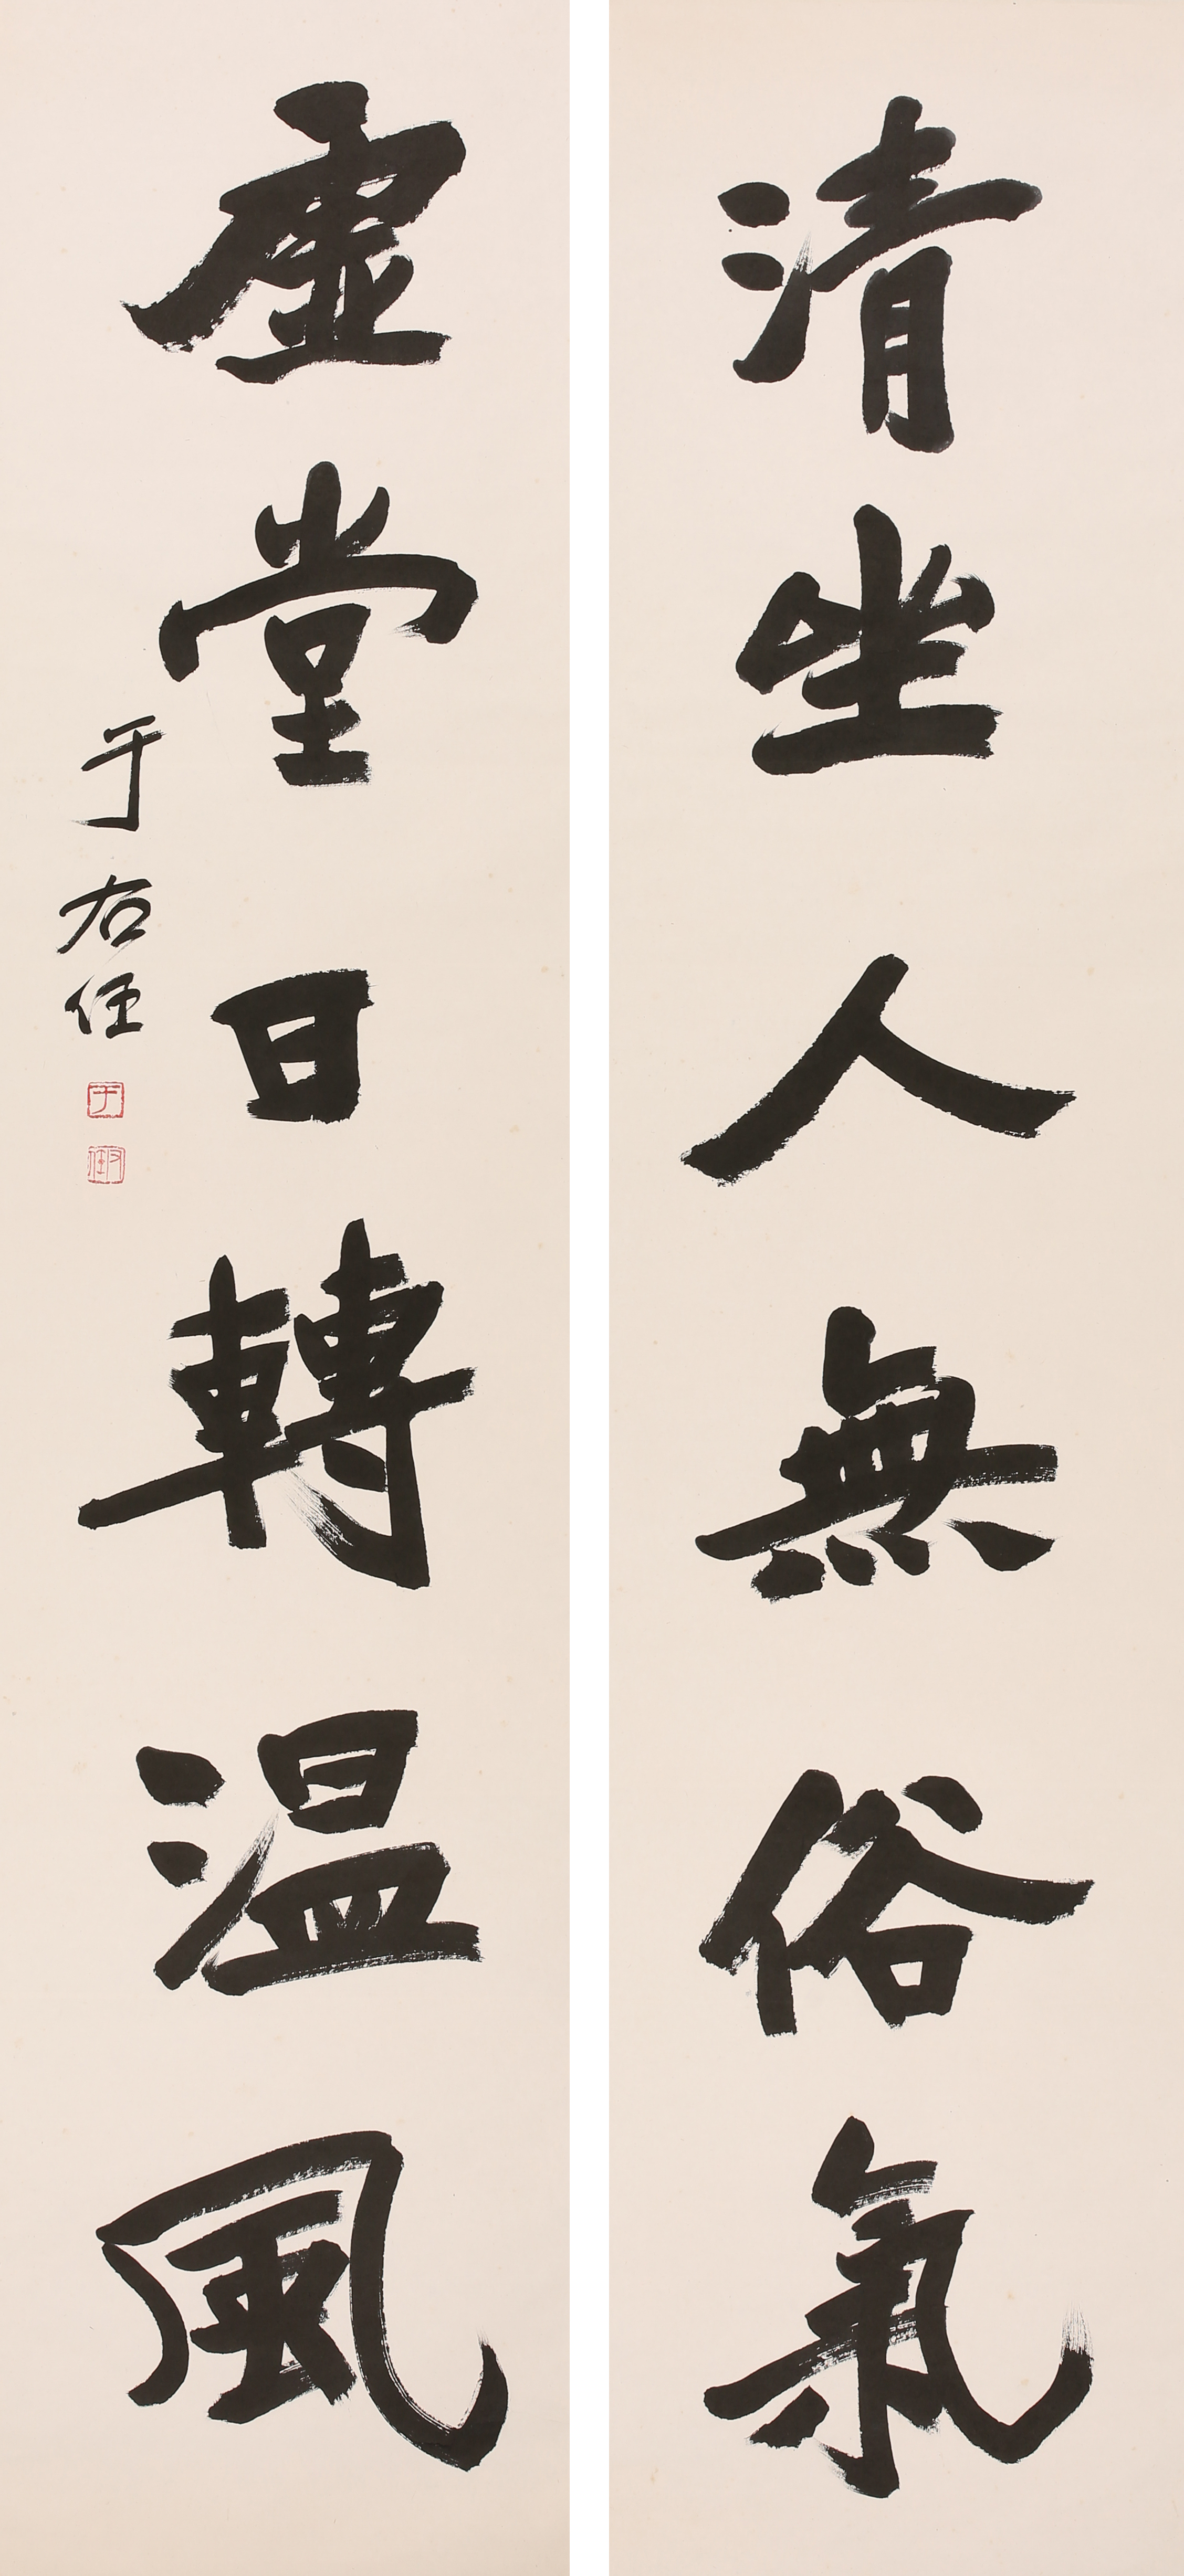 清坐人無俗氣
虛堂日轉温風
于右任
于
右任